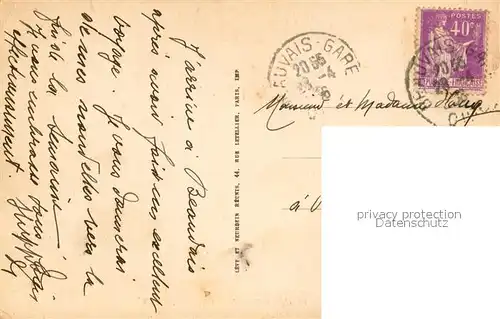 J'arrive à Beauvais
après avoir fait un excellent
voyage. Je vous donnerai
de mes nouvelles vers la
fin de la semaine.
Je vous embrasse tous
affectueusement.
LÉVY ET NEURDEIN RÉUNIS, 44, RUE LETELLIER, PARIS, IMP.
BEAUVAIS-GARE
20
POSTES
40c
BEAUVAIS-GARE
20
Monsieur et Madame
à
privacy protection
Datenschutz